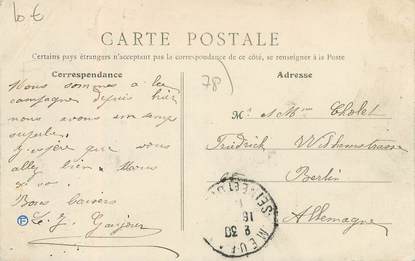 10 €
CARTE POSTALE
Certains pays étrangers n'acceptant pas la correspondance de ce côté, se renseigner à la Poste
Correspondance
78)
Adresse
Nous sommes à la
campagne depuis hier
nous avons un temps
superbe.
J'espère que vous
allez bien. Nous
Bons baisers
M. et Mme Cholet
Friedrich Wilhelmstrasse
Berlin
Allemagne
SEINE ET O
MEU
16
30